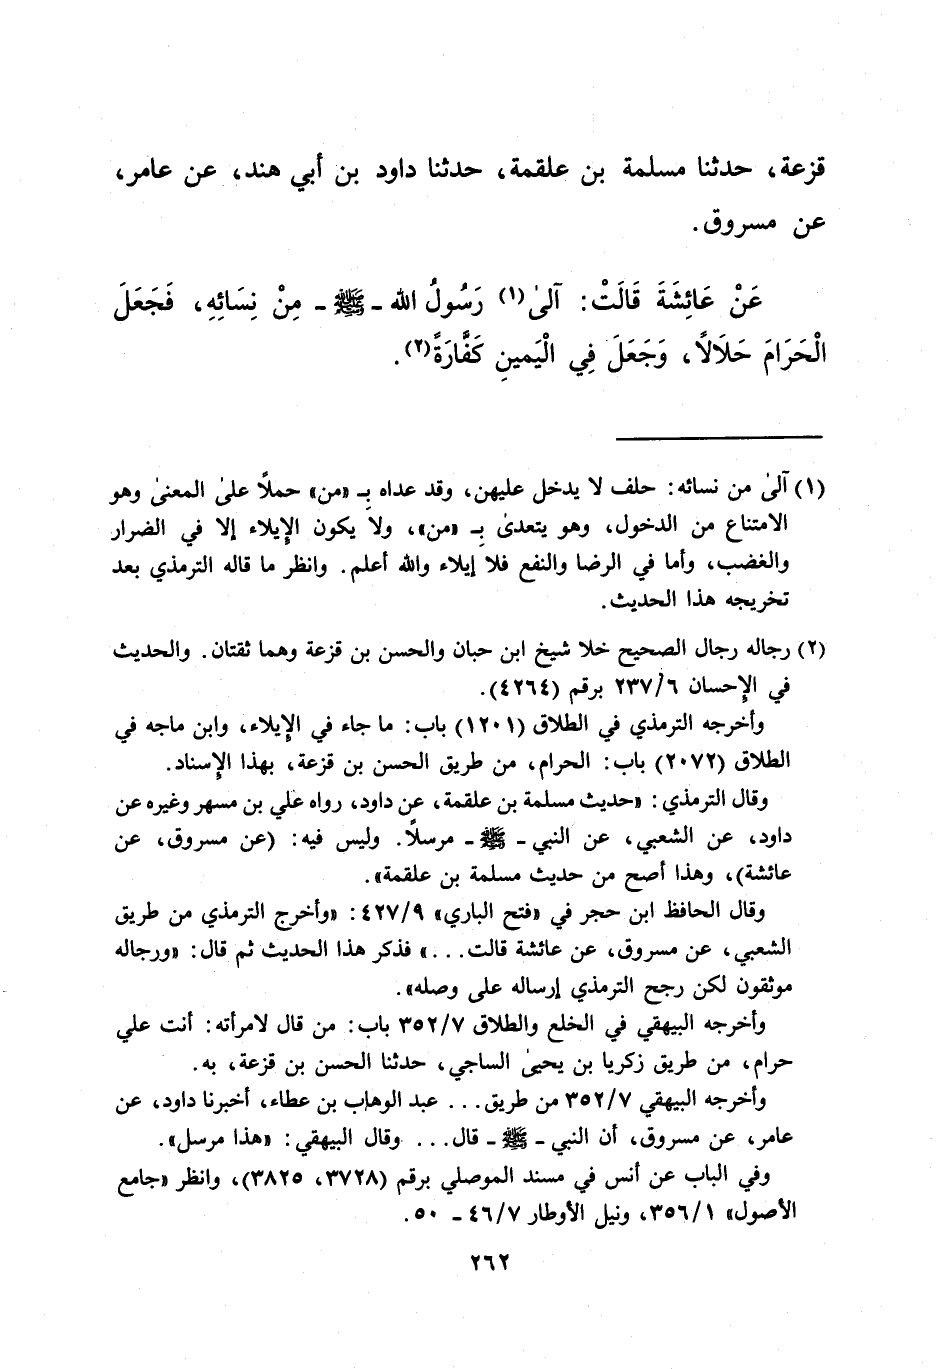 قزعة، حدثنا مسلمة بن علقمة، حدثنا داود بن أبي هند، عن عامر،
عن مسروق.
عَنْ عَائِشَةَ قَالَتْ: آلىٰ(١) رَسُولُ الله ـ ﷺ ـ مِنْ نِسَائِهِ، فَجَعَلَ
الْحَرَامَ حَلَالاً، وَجَعَلَ فِي الْيَمِينِ كَفَّارَةً(٢).
(١) آلىٰ من نسائه: حلف لا يدخل عليهن، وقد عداه بِـ «من» حملاً علىٰ المعنىٰ وهو
الامتناع من الدخول، وهو يتعدىٰ بِـ «من»، ولا يكون الإيلاء إلا في الضرار
والغضب، وأما في الرضا والنفع فلا إيلاء والله أعلم. وانظر ما قاله الترمذي بعد
تخريجه هذا الحديث.
(٢) رجاله رجال الصحيح خلا شيخ ابن حبان والحسن بن قزعة وهما ثقتان. والحديث
في الإحسان ٢٣٧/٦ برقم (٤٢٦٤).
وأخرجه الترمذي في الطلاق (١٢٠١) باب: ما جاء في الإيلاء، وابن ماجه في
الطلاق (٢٠٧٢) باب: الحرام، من طريق الحسن بن قزعة، بهذا الإسناد.
وقال الترمذي: «حديث مسلمة بن علقمة، عن داود، رواه علي بن مسهر وغيره عن
داود، عن الشعبي، عن النبي ـ ﷺ ـ مرسلاً. وليس فيه: (عن مسروق، عن
عائشة)، وهذا أصح من حديث مسلمة بن علقمة».
وقال الحافظ ابن حجر في «فتح الباري» ٤٢٧/٩: «وأخرج الترمذي من طريق
الشعبي، عن مسروق، عن عائشة قالت...» فذكر هذا الحديث ثم قال: «ورجاله
موثقون لكن رجح الترمذي إرساله على وصله».
وأخرجه البيهقي في الخلع والطلاق ٣٥٢/٧ باب: من قال لامرأته: أنت علي
حرام، من طريق زكريا بن يحيىٰ الساجي، حدثنا الحسن بن قزعة، به.
وأخرجه البيهقي ٣٥٢/٧ من طريق... عبد الوهاب بن عطاء، أخبرنا داود، عن
عامر، عن مسروق، أن النبي ـ ﷺ ـ قال... وقال البيهقي: «هذا مرسل».
وفي الباب عن أنس في مسند الموصلي برقم (٣٧٢٨، ٣٨٢٥)، وانظر «جامع
الأصول» ٣٥٦/١، ونيل الأوطار ٤٦/٧ ـ ٥٠.
٢٦٢